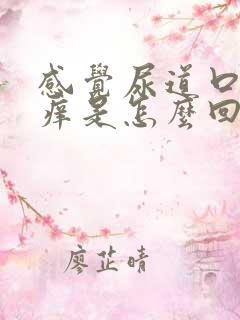 感覺尿道口
痒是怎麼回
廖芷晴